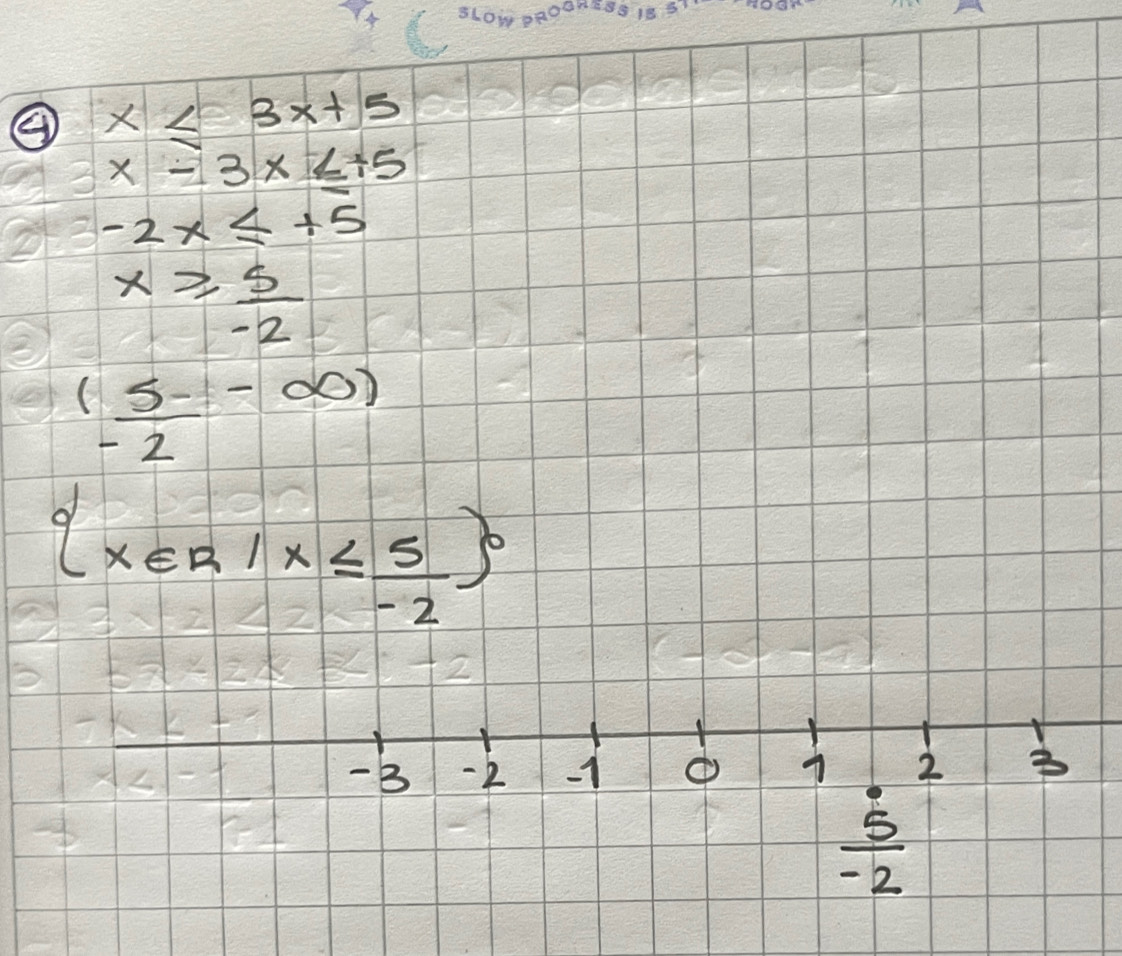 SLOW PROGRESS IS
④ x ≤ 3x+5
x - 3x ≤ +5
-2x ≤ +5
x ≥ 5/-2
( 5/-2 - ∞)
{x ∈ R / x ≤ 5/-2}
-3 -2 -1 0 1 2 3
5/-2